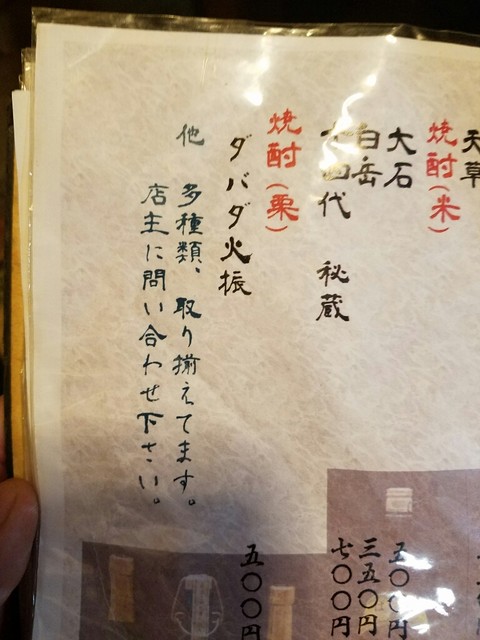 天草
焼酎(米)
大石 五〇〇円
白岳 三五〇円
十四代 秘蔵 七〇〇円
焼酎(栗)
ダバダ火振 五〇〇円
他 多種類、取り揃えてます。
店主に問い合わせ下さい。